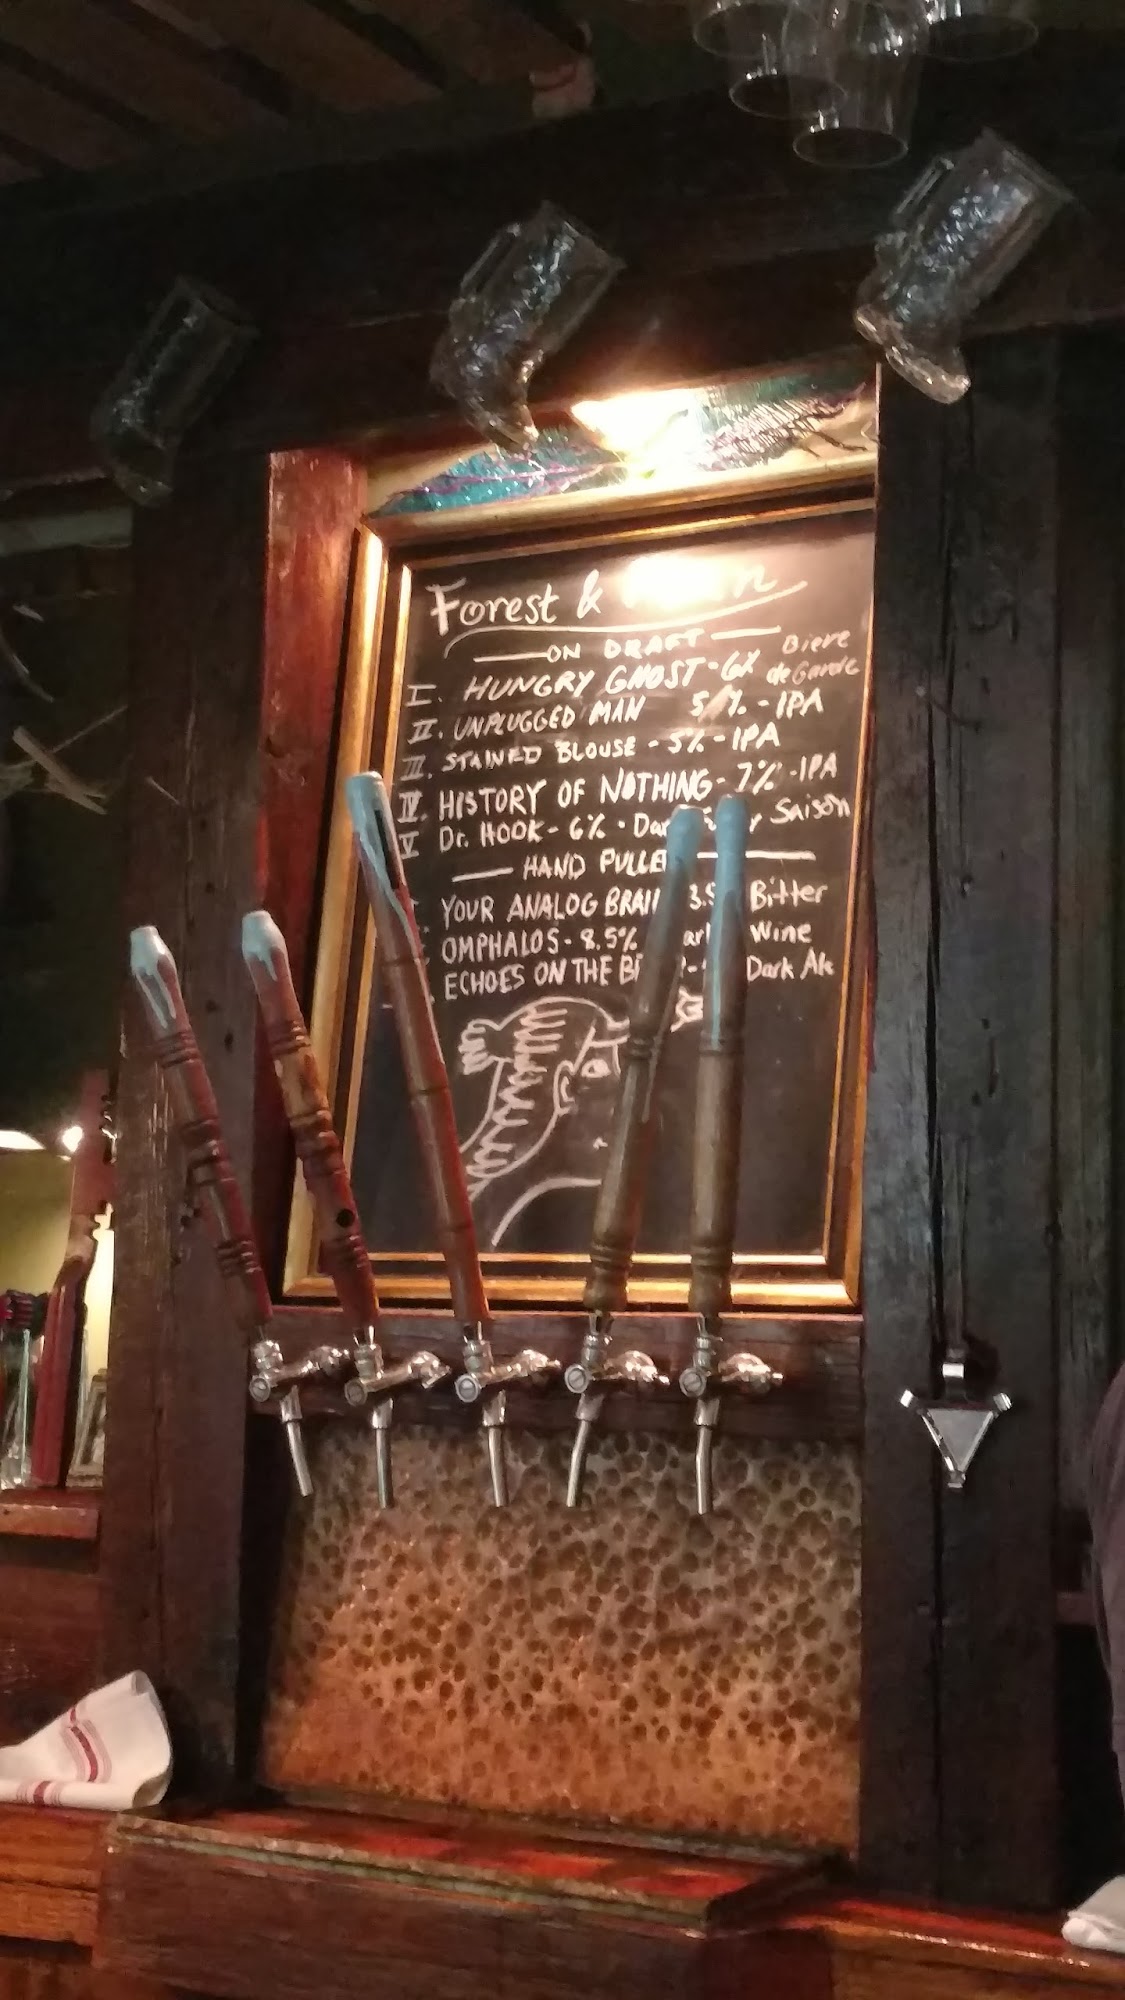 Forest &
ON DRAFT
I. HUNGRY GHOST - 6% Biere de Garde
II. UNPLUGGED MAN 5% - IPA
III. STAINED BLOUSE - 5% - IPA
IV. HISTORY OF NOTHING - 7% - IPA
V Dr. HOOK - 6% - Saison
HAND
YOUR ANALOG Bitter
OMPHALOS - 8.5% Wine
ECHOES ON THE Dark Ale